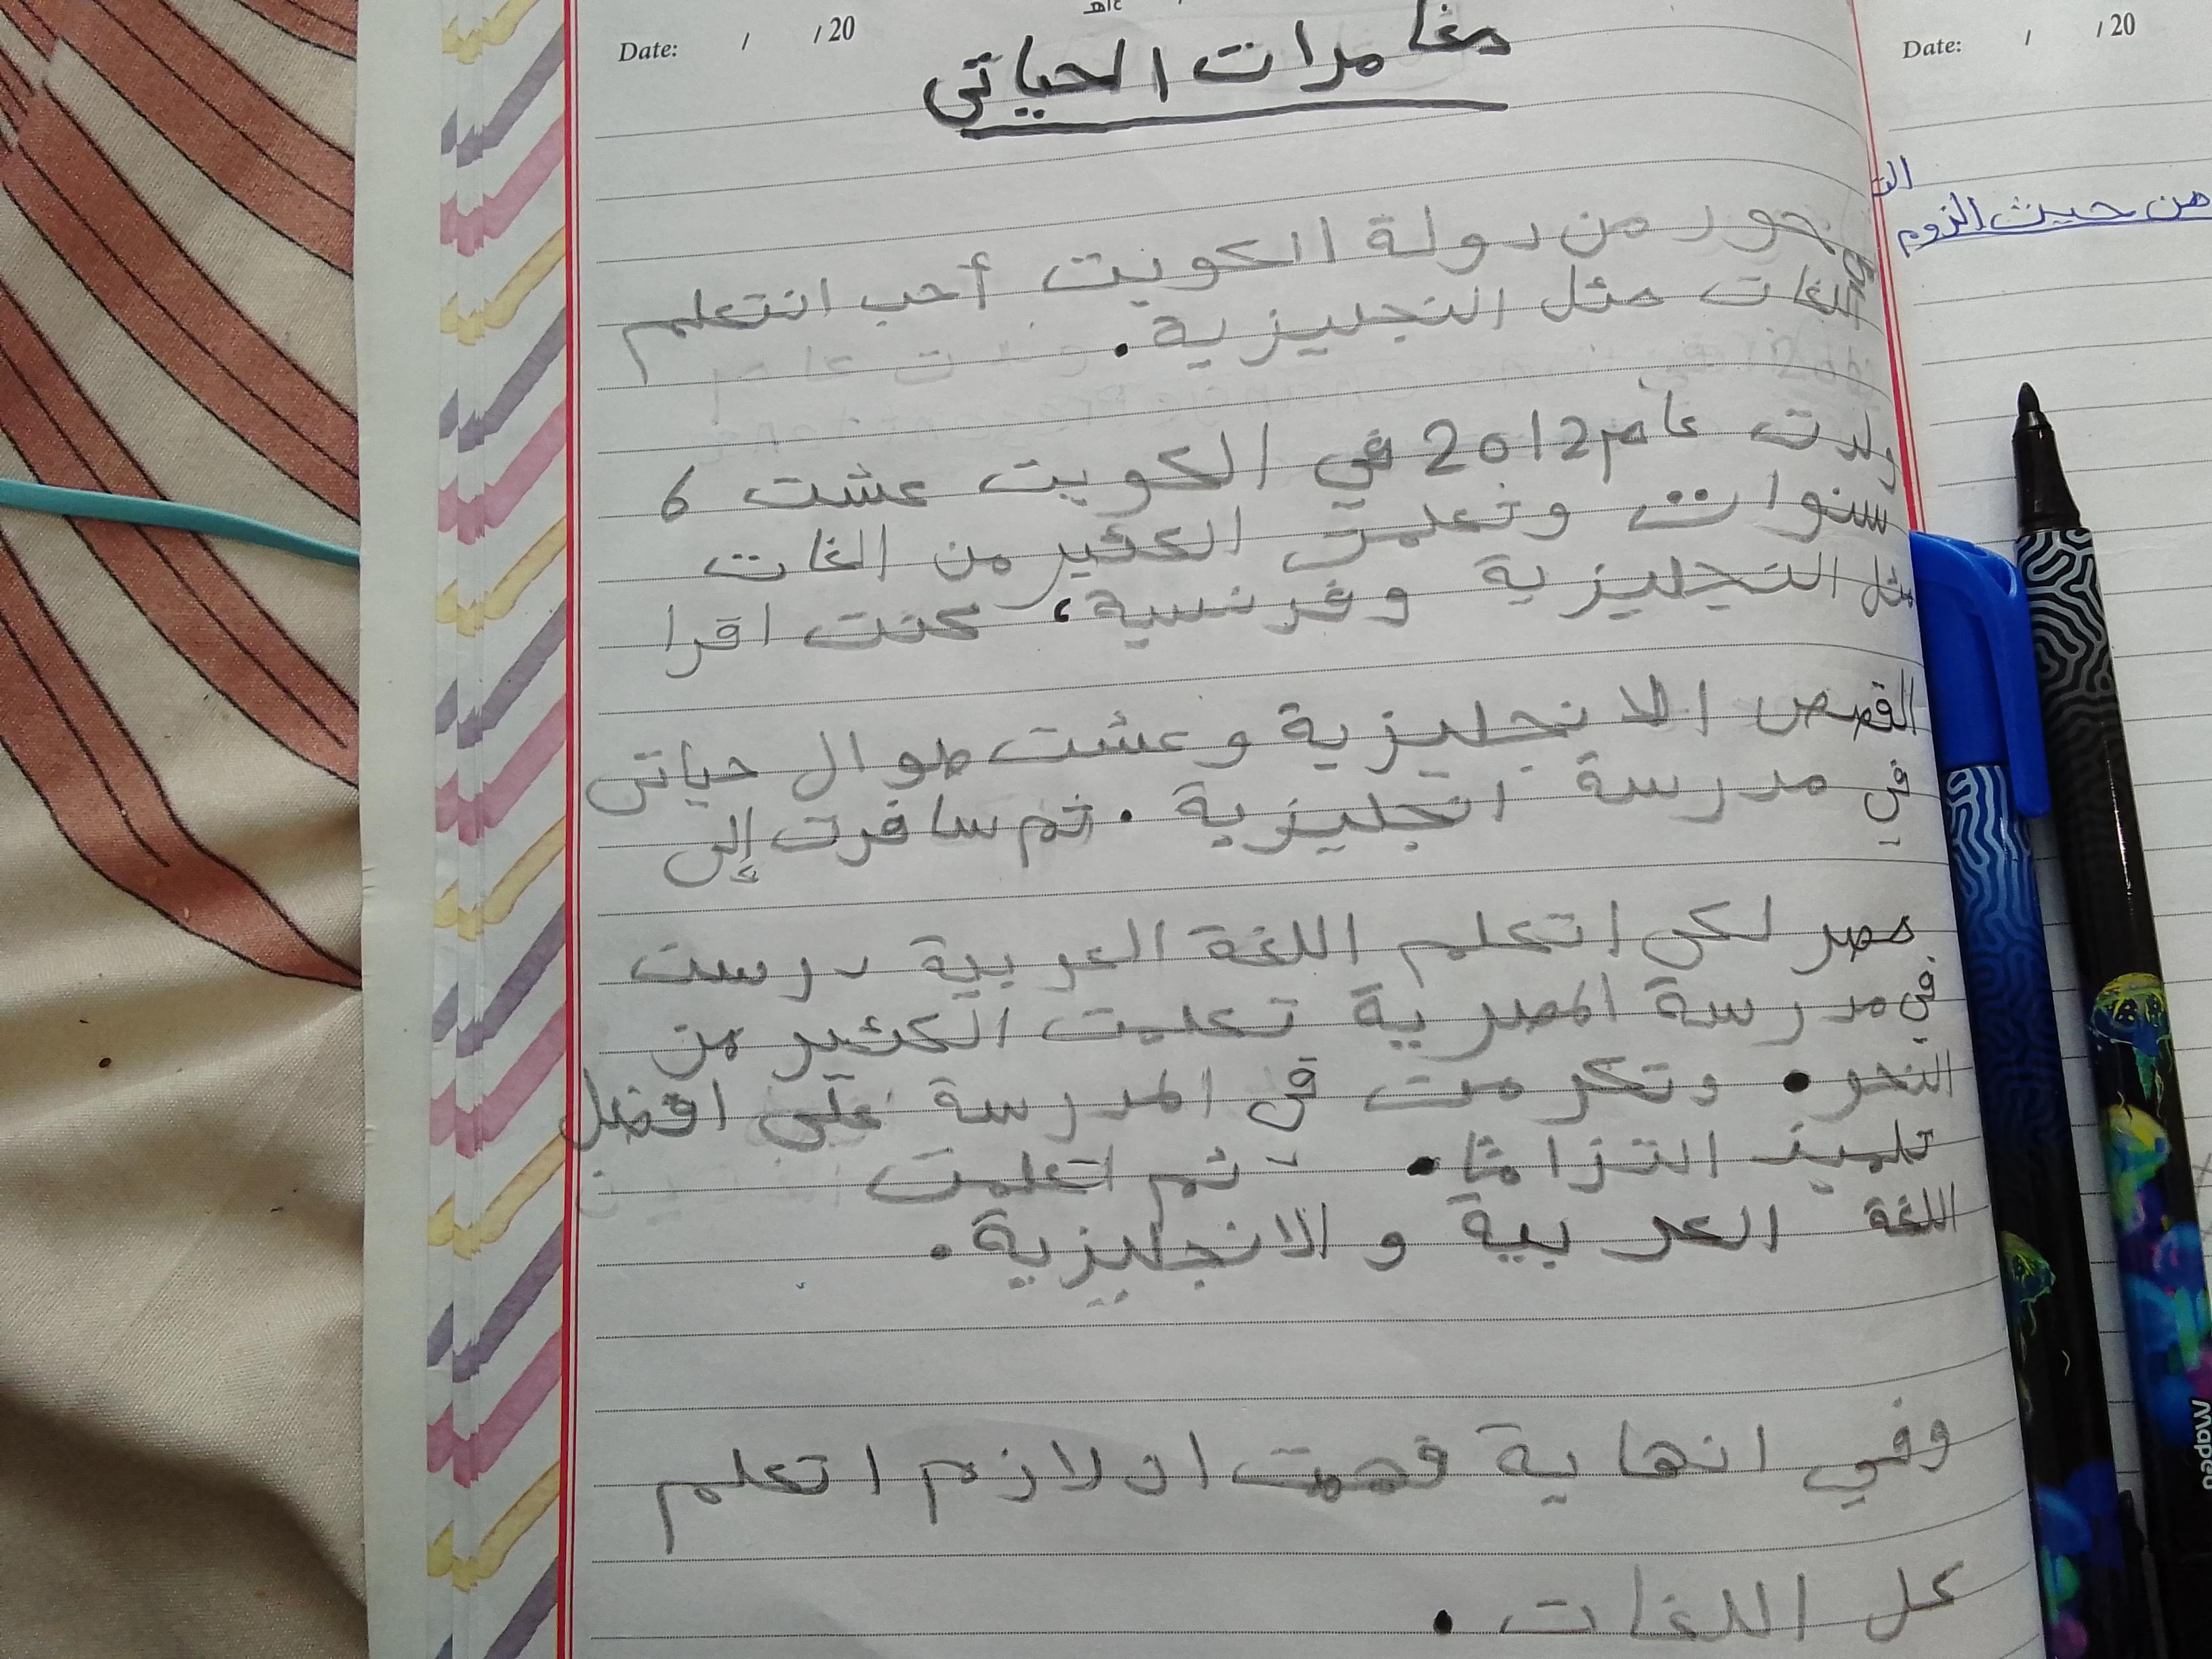 Date: / / 20
مغامرات الحياتى
حور من دولة الكويت أحب انتعلم
الغات مثل النجليزية.
ولدت عام 2012 في الكويت عشت 6
سنوات وتعلمت الكثير من الغات
مثل النجليزية وفرنسية، كنت اقرا
القصص الانجليزية وعشت طوال حياتى
في مدرسة انجليزية. ثم سافرت إلى
مصر لكى اتعلم اللغة العربية درست
في مدرسة المصرية تعلمت الكثير من
النحو. وتكرمت فى المدرسة على افضل
تلميذ التزامًا. ثم اتعلمت
اللغة العربية والانجليزية.
وفي انهاية فهمت ان لازم اتعلم
كل اللغات.
Date: / / 20
من حيث الزوم
Maped